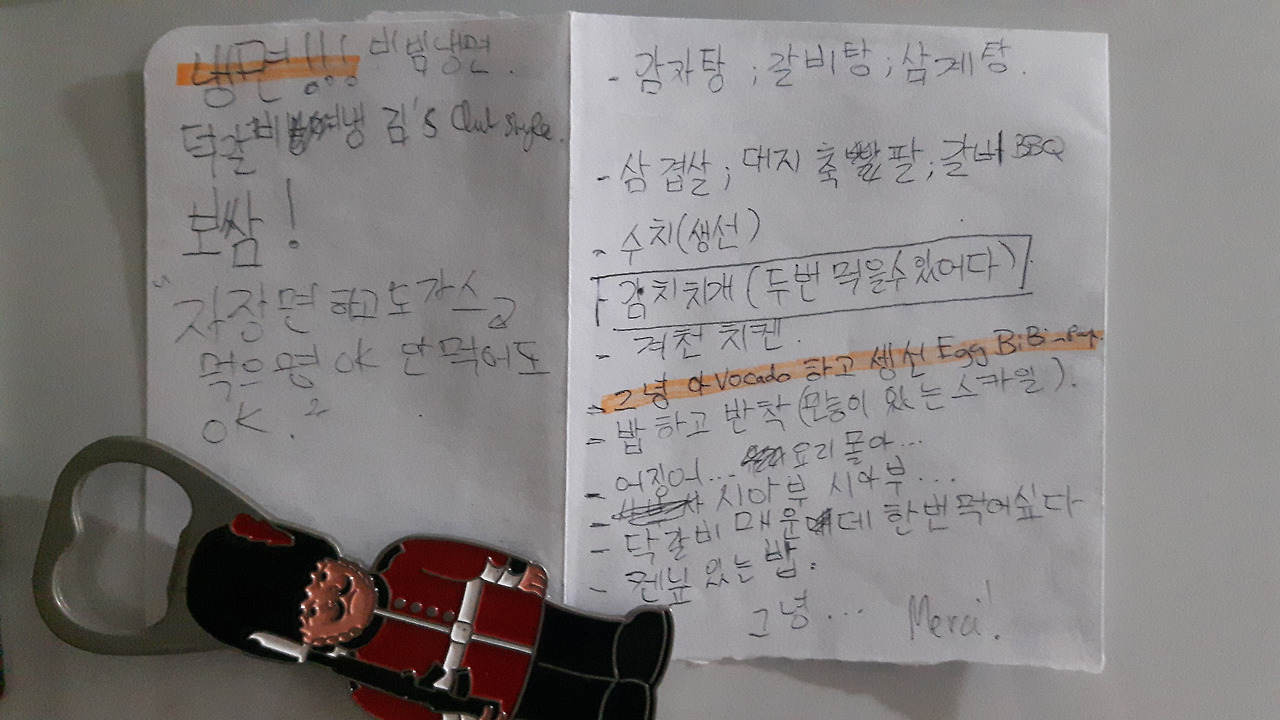 냉면!!! 비빔냉면.
덕갈비 냉 김's Club style.
보쌈!
"자장면 하고 도가스
먹으면 OK 안 먹어도
OK."
- 감자탕 ; 갈비탕 ; 삼계탕.
- 삼겹살 ; 대지 축 팔 ; 갈비 BBQ
- 수치(생선)
- 감치치개 (두번 먹을수있어다)
- 격천 치켄.
- 그녕 아Vocado 하고 셍선 Egg BiBimpap.
- 밥 하고 반착 ( 있는 스카일).
- 어징어... 요리 몰아...
- 시아부 시아부...
- 닥갈비 매운데 한번먹어싶다
- 깬닢 있는 밥.
그녕... Merci!